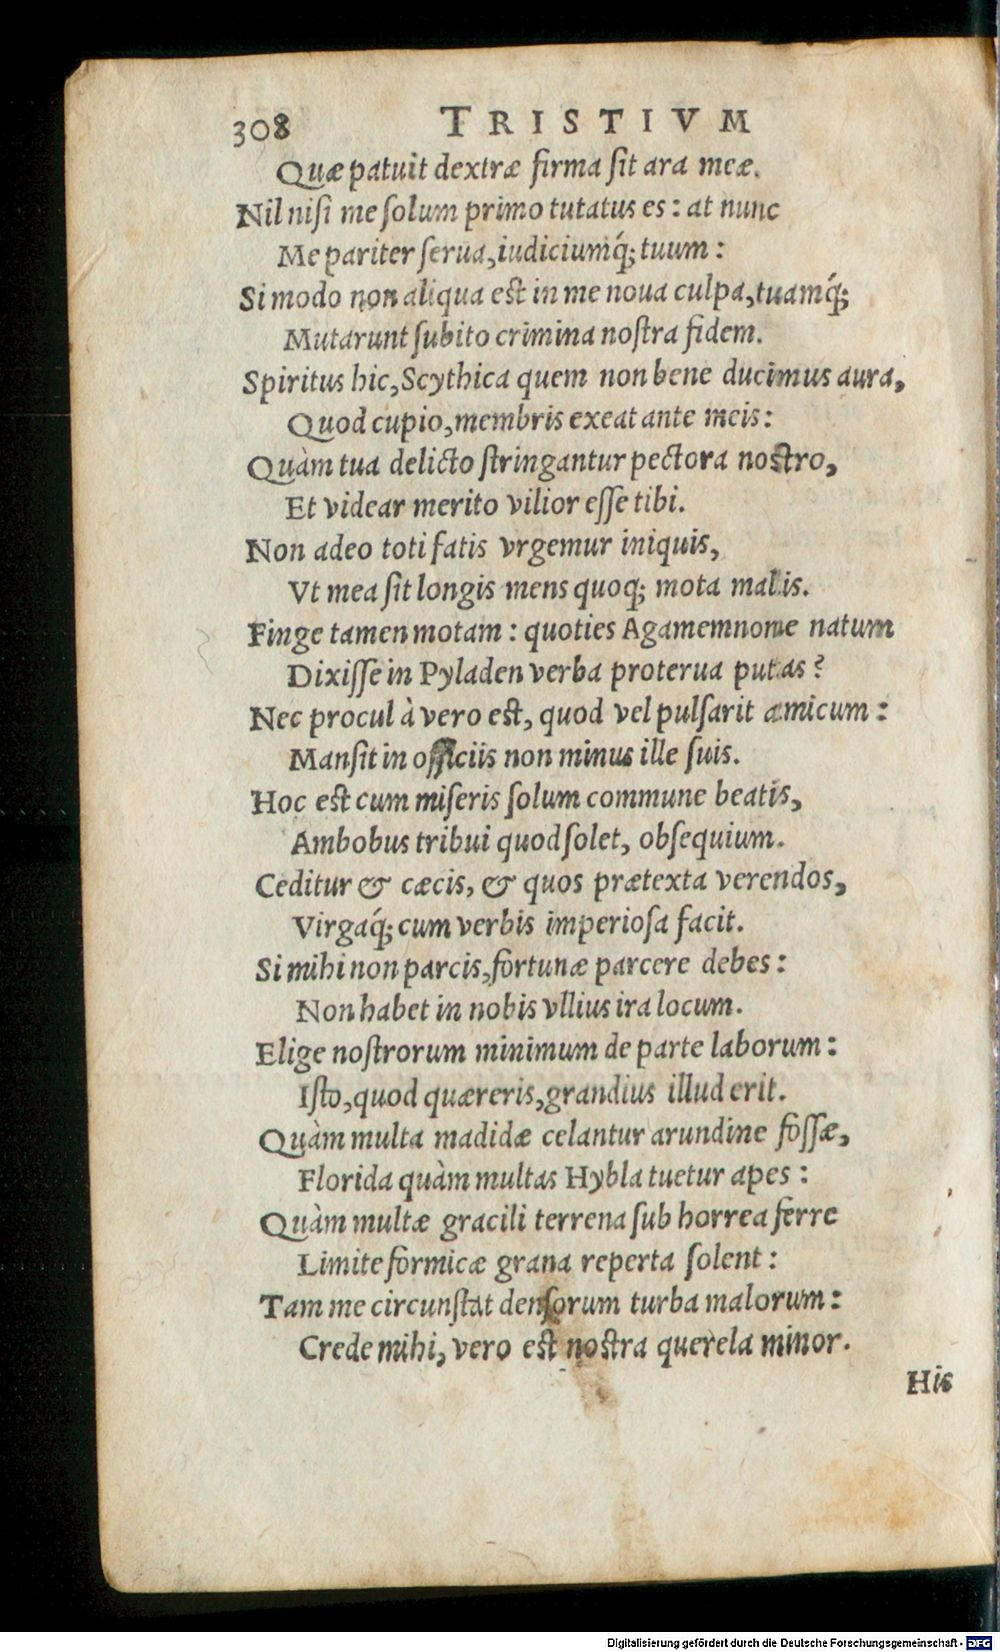 308 TRISTIVM
Quæ patuit dextræ firma sit ara meæ.
Nil nisi me solum primo tutatus es : at nunc
Me pariter serua, iudiciumq́; tuum :
Si modo non aliqua est in me noua culpa, tuamq́;
Mutarunt subito crimina nostra fidem.
Spiritus hic, Scythica quem non bene ducimus aura,
Quod cupio, membris exeat ante meis :
Quàm tua delicto stringantur pectora nostro,
Et videar merito vilior esse tibi.
Non adeo toti fatis vrgemur iniquis,
Vt mea sit longis mens quoq; mota malis.
Finge tamen motam : quoties Agamemnone natum
Dixisse in Pyladen verba proterua putas ?
Nec procul à vero est, quod vel pulsarit amicum :
Mansit in officiis non minus ille suis.
Hoc est cum miseris solum commune beatis,
Ambobus tribui quod solet, obsequium.
Ceditur & cæcis, & quos prætexta verendos,
Virgaq́; cum verbis imperiosa facit.
Si mihi non parcis, fortunæ parcere debes :
Non habet in nobis vllius ira locum.
Elige nostrorum minimum de parte laborum :
Isto, quod quæreris, grandius illud erit.
Quàm multa madidæ celantur arundine fossæ,
Florida quàm multas Hybla tuetur apes :
Quàm multæ gracili terrena sub horrea ferre
Limite formicæ grana reperta solent :
Tam me circunstat densorum turba malorum :
Crede mihi, vero est nostra querela minor.
His
Digitalisierung gefördert durch die Deutsche Forschungsgemeinschaft - DFG